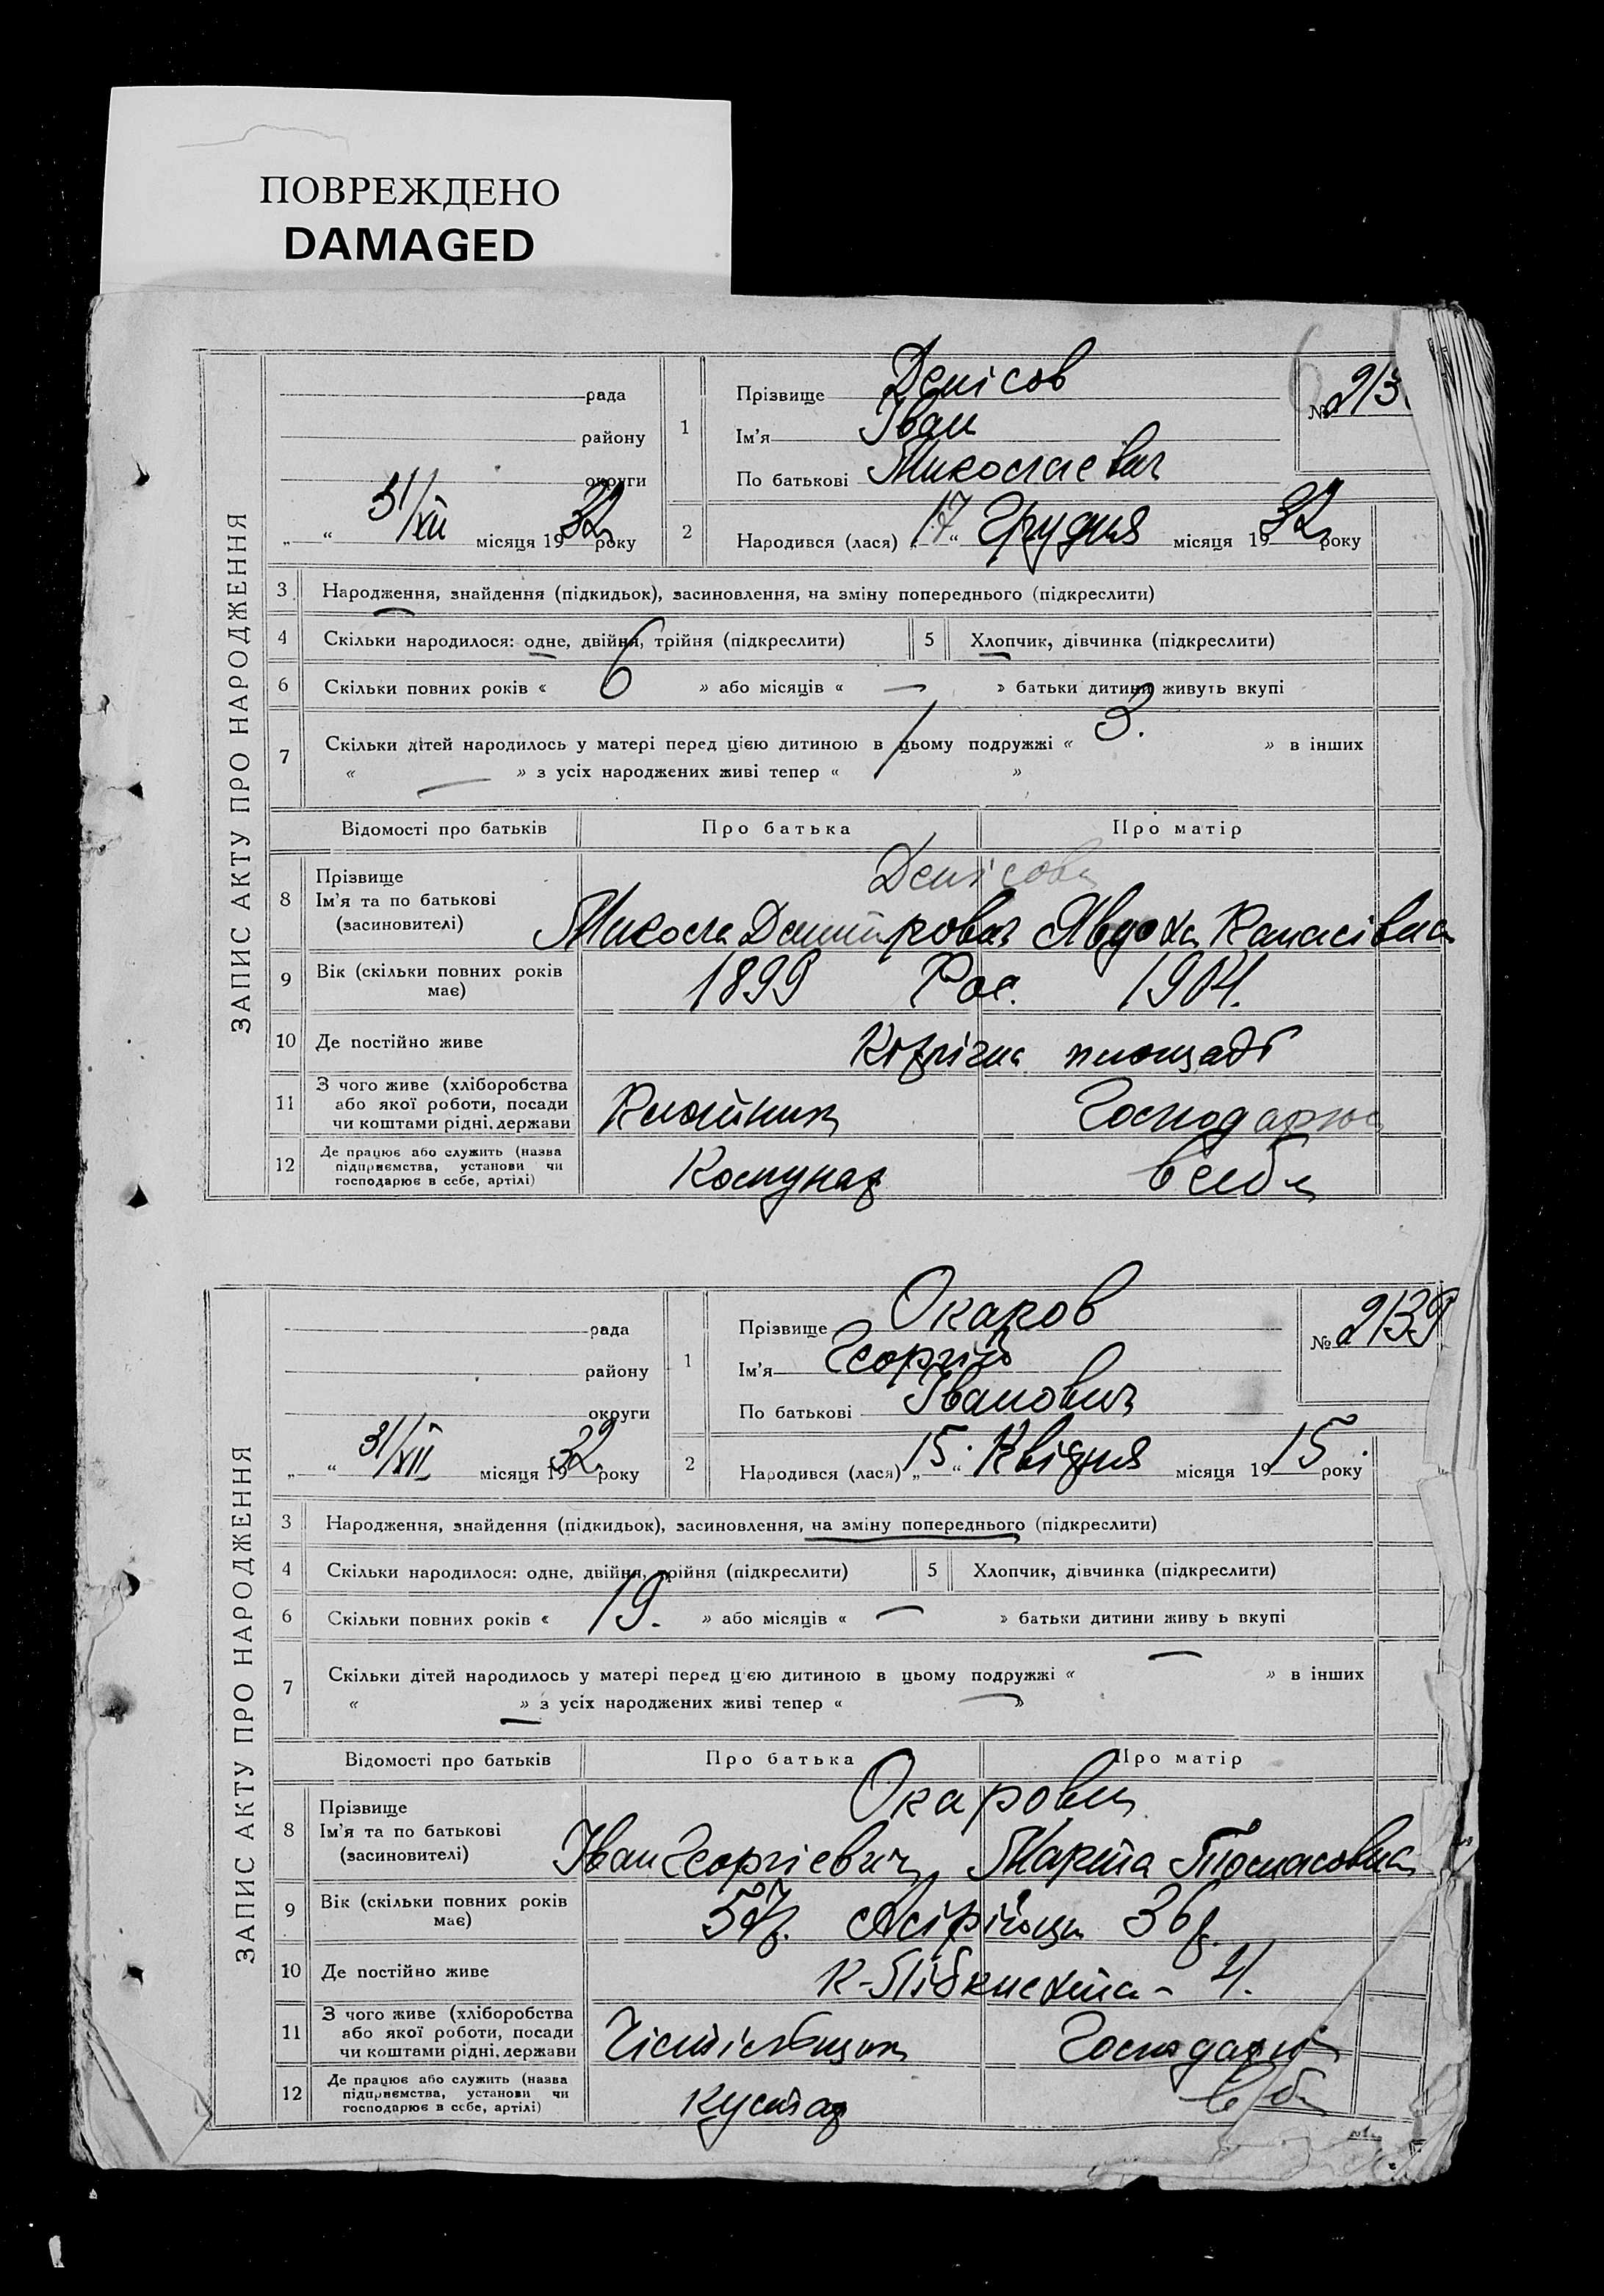 ПОВРЕЖДЕНО
DAMAGED
ЗАПИС АКТУ ПРО НАРОДЖЕННЯ
рада
району
округи
„ “ 31/XII місяця 1932 року
1
Прізвище Денісов
Ім'я Іван
По батькові Миколаєвич
№ 213
2
Народився (лася) „17“ Грудня місяця 1932 року
3 Народження, знайдення (підкидьок), засиновлення, на зміну попереднього (підкреслити)
4 Скільки народилося: одне, двійня, трійня (підкреслити) 5 Хлопчик, дівчинка (підкреслити)
6 Скільки повних років « 6 » або місяців « — » батьки дитини живуть вкупі
7 Скільки дітей народилось у матері перед цією дитиною в цьому подружжі « 3. » в інших
« — » з усіх народжених живі тепер « 1 »
Відомості про батьків Про батька Про матір
8 Прізвище
Ім'я та по батькові
(засиновителі)
Денісови
Микола Дмитрович Явдоха
9 Вік (скільки повних років має)
1899 Рос. 1904.
10 Де постійно живе
площадь
11 З чого живе (хліборобства
або якої роботи, посади
чи коштами рідні, держави
Господарює
12 Де працює або служить (назва
підприємства, установи чи
господарює в себе, артілі)
Комунар в себе
ЗАПИС АКТУ ПРО НАРОДЖЕННЯ
рада
району
округи
„ “ 31/XII місяця 1932. року
1
Прізвище Окаров
Ім'я Георгій
По батькові Іванович
№ 2139
2
Народився (лася) „15.“ Квідня місяця 1915. року
3 Народження, знайдення (підкидьок), засиновлення, на зміну попереднього (підкреслити)
4 Скільки народилося: одне, двійня, трійня (підкреслити) 5 Хлопчик, дівчинка (підкреслити)
6 Скільки повних років « 19. » або місяців « — » батьки дитини живу ь вкупі
7 Скільки дітей народилось у матері перед цєю дитиною в цьому подружжі « — » в інших
« — » з усіх народжених живі тепер « — »
Відомості про батьків Про батька Про матір
8 Прізвище
Ім'я та по батькові
(засиновителі)
Окарови
Іван Георгієвич Марта Томасовна
9 Вік (скільки повних років має)
57р. Асірійци 36р.
10 Де постійно живе
К-Лібкнехта - 4.
11 З чого живе (хліборобства
або якої роботи, посади
чи коштами рідні, держави
Чістільщик Господарює
12 Де працює або служить (назва
підприємства, установи чи
господарює в себе, артілі)
кустар